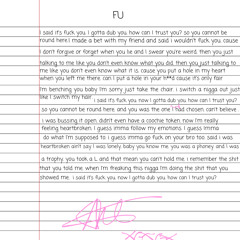 FU
I said it's fuck you I gotta dub you how can I trust you? so you cannot be
round here I made a bet with my friend and said I wouldn't fuck you cause
I don't forgive or forget when you lie and I swear you're weird, then you just
talking to me like you don't even know what you did, then you just talking to
me like you don't even know what it is, cause you put a hole in my heart
when you left me there, can I put a hole in your h**d cause it's only fair
I'm benching you baby I'm sorry just take the chair, I switch a nigga out just
like I switch my hair. I said it's fuck you now I gotta dub you how can I trust you?
so you cannot be round here, and you was the one I had chosen, can't believe
I was bussing it open, didn't even have a coochie token, now I'm really
feeling heartbroken, I guess imma follow my emotions, I guess imma
do what I'm supposed to, I guess imma go fuck on your bro too, said I was
heartbroken ain't say I was lonely baby you know me, you was a phoney and I was
a trophy, you took a L, and that mean you can't hold me, I remember the shit
that you told me, when I'm freaking this nigga I'm doing the shit that you
showed me, I said it's fuck you now I gotta dub you how can I trust you?
xxxx